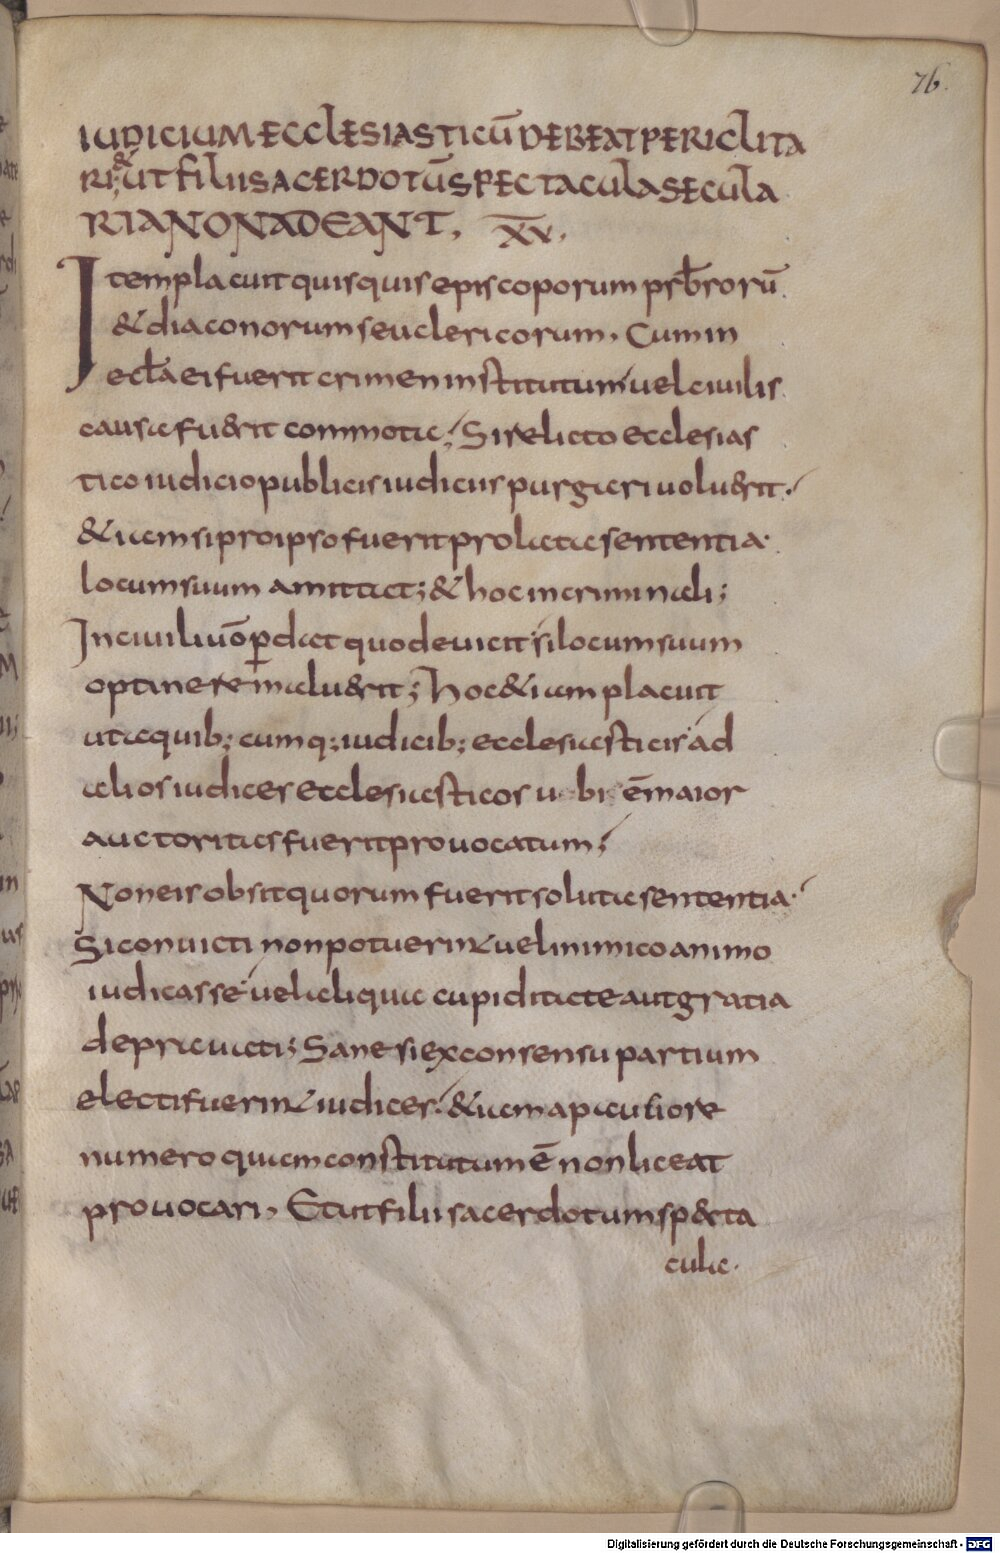 76.
IUDICIUM ECCLESIASTICŪ DEBEAT PERICLITA
RI; & UT FILII SACERDOTŪ SPECTACULA SECULA
RIA NON ADEANT. XV.
Item placuit quisquis episcoporum prsb̄rorū
& diaconorum seu clericorum. Cum in
eccl̄a ei fuerit crimen institutum uel ciuilis
causa fu&rit commota; Si relicto ecclesias
tico iudicio publicis iudiciis purgari uolu&rit.
&iam si pro ipso fuerit prolata sententia.
locum suum amittat; & hoc in criminali;
In ciuili uō ꝑdat quod euicit si locum suum
optinere malu&rit; Hoc &iam placuit
ut a quib; cumq; iudicib; ecclesiasticis ad
alios iudices ecclesiasticos ubi ē maior
auctoritas fuerit prouocatum;
Non eis obsit quorum fuerit soluta sententia.
Si conuicti non potuerint uel inimico animo
iudicasse uel aliqua cupiditate aut gratia
deprauati; Sane si ex consensu partium
electi fuerint iudices. &iam a pautiore
numero quam constitutum ē non liceat
prouocari. Et ut filii sacerdotum sp&cta
cula.
Digitalisierung gefördert durch die Deutsche Forschungsgemeinschaft - DFG